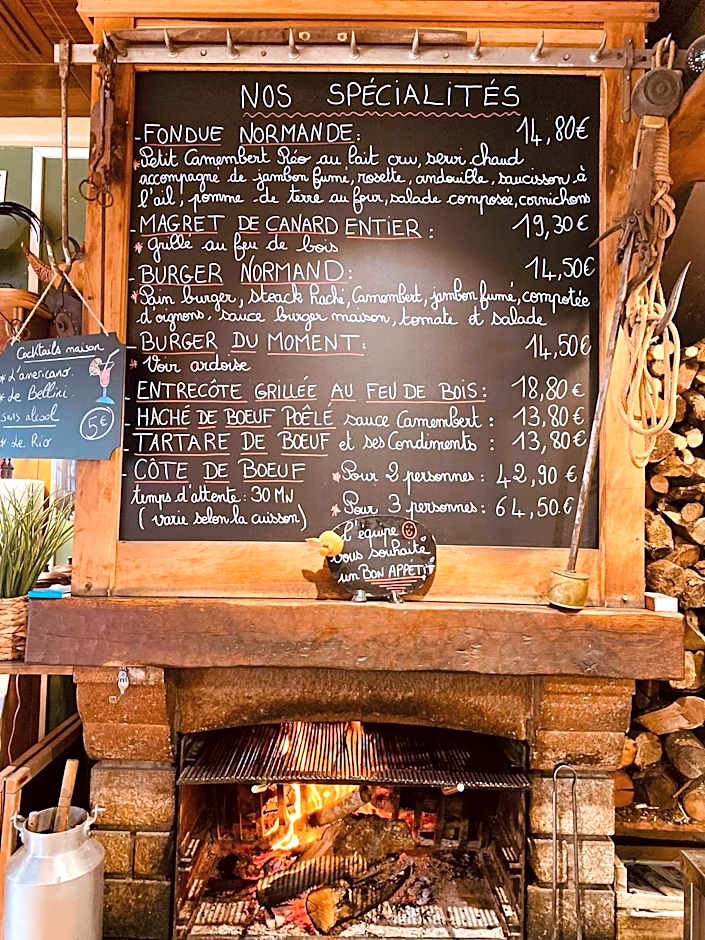 NOS SPÉCIALITÉS
- FONDUE NORMANDE: 14,80€
* Petit Camembert Réo au lait cru, servi chaud
accompagné de jambon fumé, rosette, andouille, saucisson à
l'ail, pomme de terre au four, salade composée, cornichons
- MAGRET DE CANARD ENTIER: 19,30€
* Grillé au feu de bois
- BURGER NORMAND: 14,50€
* Pain burger, Steack haché, Camembert, jambon fumé, compotée
d'oignons, sauce burger maison, tomate et salade
- BURGER DU MOMENT: 14,50€
* Voir ardoise
- ENTRECÔTE GRILLÉE AU FEU DE BOIS: 18,80€
- HACHÉ DE BOEUF POÊLÉ sauce Camembert: 13,80€
- TARTARE DE BOEUF et ses Condiments: 13,80€
- CÔTE DE BOEUF * Pour 2 personnes: 42,90€
temps d'attente: 30 MN * Pour 3 personnes: 64,50€
(varie selon la cuisson)
Cocktails maison
* L'americano.
* Le Bellini.
sans alcool
* Le Rio
5€
L'équipe
vous souhaite
un BON APPÉTIT